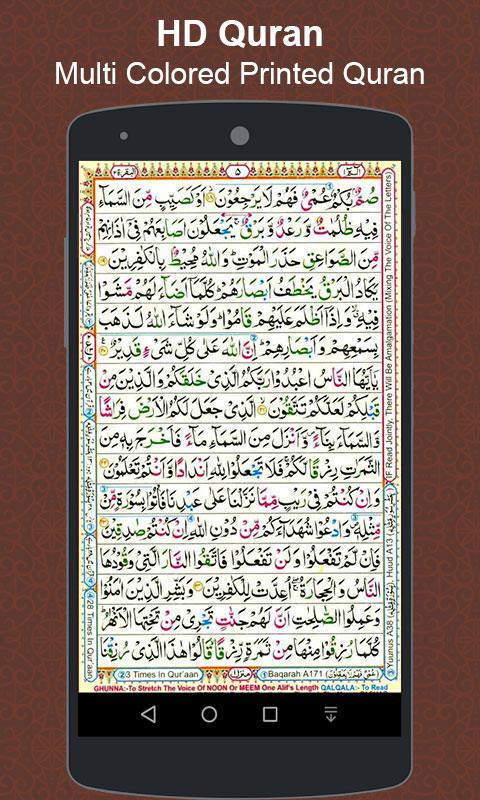 HD Quran
Multi Colored Printed Quran
البقرة ٢
٥
الٓمّٓ ١
صُمٌّۢ بُكْمٌ عُمْيٌ فَهُمْ لَا يَرْجِعُوْنَ اَوْ كَصَيِّبٍ مِّنَ السَّمَآءِ
فِيْهِ ظُلُمٰتٌ وَّرَعْدٌ وَّبَرْقٌ يَجْعَلُوْنَ اَصَابِعَهُمْ فِيْٓ اٰذَانِهِمْ
مِّنَ الصَّوَاعِقِ حَذَرَ الْمَوْتِ وَاللّٰهُ مُحِيْطٌۢ بِالْكٰفِرِيْنَ
يَكَادُ الْبَرْقُ يَخْطَفُ اَبْصَارَهُمْ كُلَّمَآ اَضَآءَ لَهُمْ مَّشَوْا
فِيْهِ وَاِذَآ اَظْلَمَ عَلَيْهِمْ قَامُوْا وَلَوْ شَآءَ اللّٰهُ لَذَهَبَ
بِسَمْعِهِمْ وَاَبْصَارِهِمْ اِنَّ اللّٰهَ عَلٰى كُلِّ شَيْءٍ قَدِيْرٌ
يٰٓاَيُّهَا النَّاسُ اعْبُدُوْا رَبَّكُمُ الَّذِيْ خَلَقَكُمْ وَالَّذِيْنَ مِنْ
قَبْلِكُمْ لَعَلَّكُمْ تَتَّقُوْنَ الَّذِيْ جَعَلَ لَكُمُ الْاَرْضَ فِرَاشًا
وَّالسَّمَآءَ بِنَآءً وَّاَنْزَلَ مِنَ السَّمَآءِ مَآءً فَاَخْرَجَ بِهٖ مِنَ
الثَّمَرٰتِ رِزْقًا لَّكُمْ فَلَا تَجْعَلُوْا لِلّٰهِ اَنْدَادًا وَّاَنْتُمْ تَعْلَمُوْنَ
وَاِنْ كُنْتُمْ فِيْ رَيْبٍ مِّمَّا نَزَّلْنَا عَلٰى عَبْدِنَا فَاْتُوْا بِسُوْرَةٍ مِّنْ
مِّثْلِهٖ وَادْعُوْا شُهَدَآءَكُمْ مِّنْ دُوْنِ اللّٰهِ اِنْ كُنْتُمْ صٰدِقِيْنَ
فَاِنْ لَّمْ تَفْعَلُوْا وَلَنْ تَفْعَلُوْا فَاتَّقُوا النَّارَ الَّتِيْ وَقُوْدُهَا
النَّاسُ وَالْحِجَارَةُ اُعِدَّتْ لِلْكٰفِرِيْنَ وَبَشِّرِ الَّذِيْنَ اٰمَنُوْا
وَعَمِلُوا الصّٰلِحٰتِ اَنَّ لَهُمْ جَنّٰتٍ تَجْرِيْ مِنْ تَحْتِهَا الْاَنْهٰرُ
كُلَّمَا رُزِقُوْا مِنْهَا مِنْ ثَمَرَةٍ رِّزْقًا قَالُوْا هٰذَا الَّذِيْ رُزِقْنَا
IF Read Jointly, There Will Be Amalgamation (Mixing The Voice Of The Letters)
Yuunus A38, Huud A13
28 Times In Qur'aan
2 3 Times In Qur'aan
منزل ١
1 Baqarah A171
GHUNNA:- To Stretch The Voice Of NOON Or MEEM One Alif's Length QALQALA:- To Read